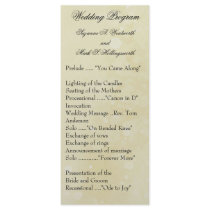 Wedding Program
Suzanne A. Wentworth
and
Mark P. Hollingsworth
Prelude ..... "You Came Along"
Lighting of the Candles
Seating of the Mothers
Processional ......"Canon in D"
Invocation
Wedding Message ..Rev. Tom
Anderson
Solo ....."On Bended Knee"
Exchange of vows
Exchange of rings
Announcement of marriage
Solo ............."Forever Mine"
Presentation of the
Bride and Groom
Recessional ....."Ode to Joy"